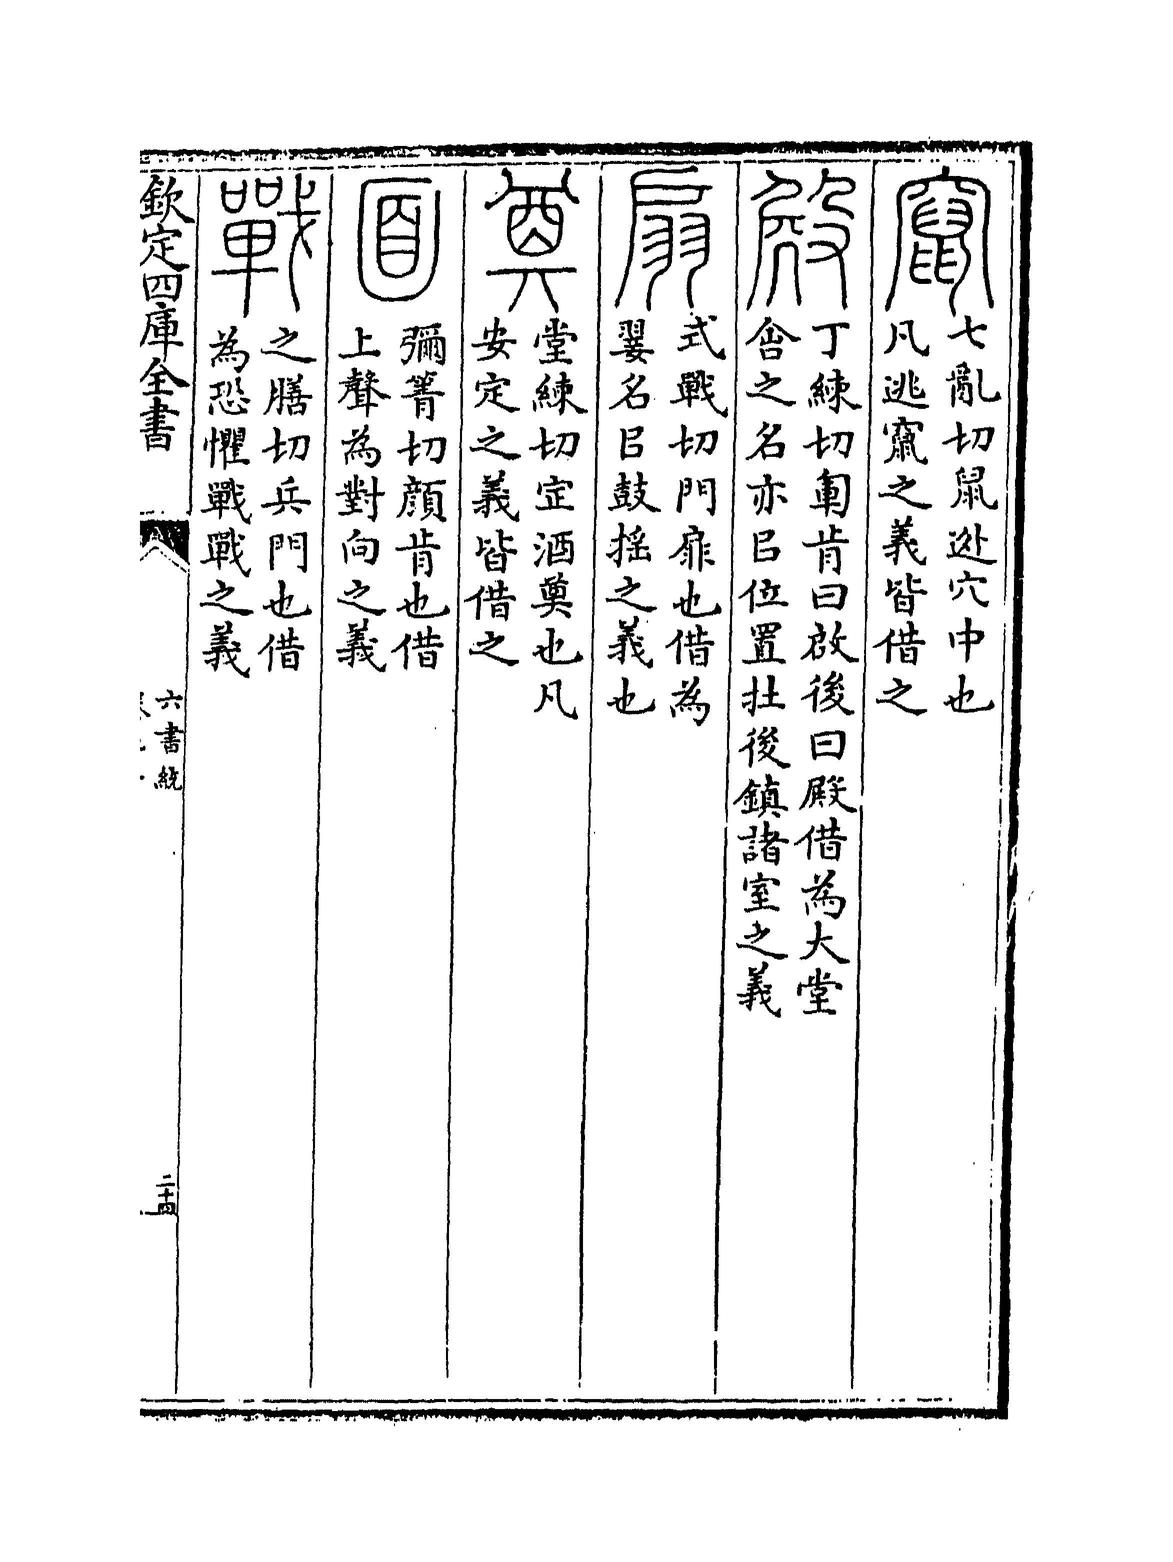 竄
七亂切鼠逃穴中也
凡逃竄之義皆借之
丁練切軍前曰啟後曰殿借為大堂
舍之名亦㠯位置在後鎮諸室之義
扇
式戰切門扉也借為
翣名㠯鼓揺之義也
奠
堂練切定酒奠也凡
安定之義皆借之
面
彌箐切顔前也借
上聲為對向之義
戰
之膳切兵鬥也借
為恐懼戰戰之義
欽定四庫全書
六書統
二十四